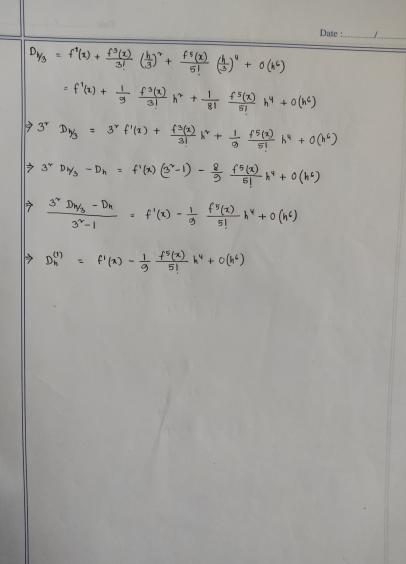 Date : ........../..........
D_{h/3} = f'(x) + \frac{f^3(x)}{3!} (\frac{h}{3})^2 + \frac{f^5(x)}{5!} (\frac{h}{3})^4 + O(h^6)
= f'(x) + \frac{1}{9} \frac{f^3(x)}{3!} h^2 + \frac{1}{81} \frac{f^5(x)}{5!} h^4 + O(h^6)
⇒ 3^2 D_{h/3} = 3^2 f'(x) + \frac{f^3(x)}{3!} h^2 + \frac{1}{9} \frac{f^5(x)}{5!} h^4 + O(h^6)
⇒ 3^2 D_{h/3} - D_h = f'(x) (3^2-1) - \frac{8}{9} \frac{f^5(x)}{5!} h^4 + O(h^6)
⇒ \frac{3^2 D_{h/3} - D_h}{3^2-1} = f'(x) - \frac{1}{9} \frac{f^5(x)}{5!} h^4 + O(h^6)
⇒ D_h^{(1)} = f'(x) - \frac{1}{9} \frac{f^5(x)}{5!} h^4 + O(h^6)